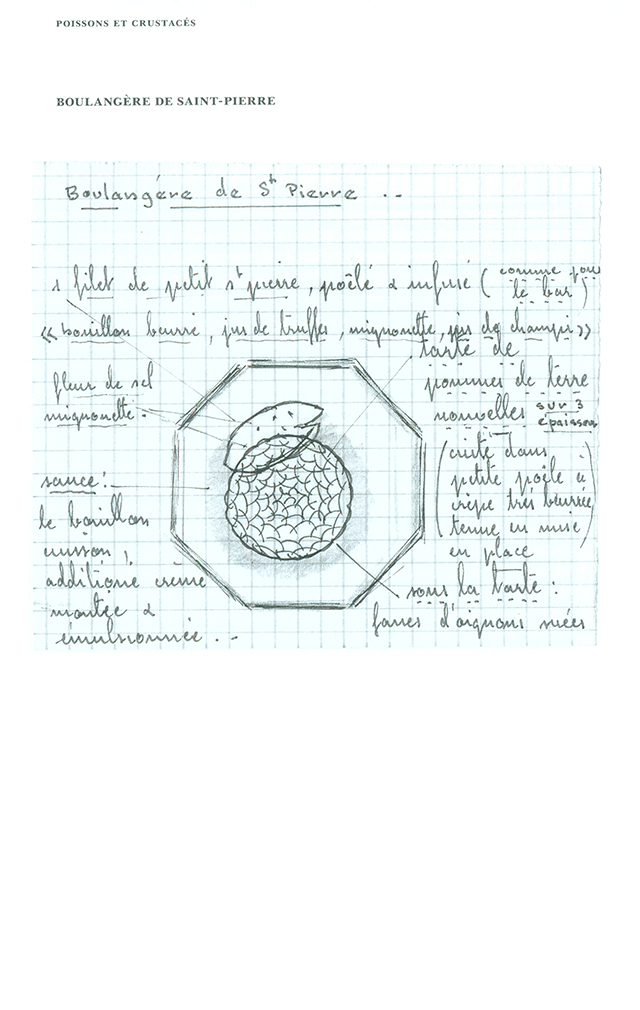 POISSONS ET CRUSTACÉS
BOULANGÈRE DE SAINT-PIERRE
Boulangère de St Pierre ..
1 filet de petit st pierre, poêlé & infusé (comme pour
le bar)
« bouillon beurré, jus de truffes, mignonette, jus de champi »
fleur de sel
mignonette.
sauce:
le bouillon
cuisson,
additioné crème
montée &
émulsionnée ..
tarte de
pommes de terre
nouvelles sur 3
épaisseurs
(cuite dans
petite poêle à
crêpe très beurrée,
tenue en mise
en place)
sous la tarte :
fanes d'oignons suées